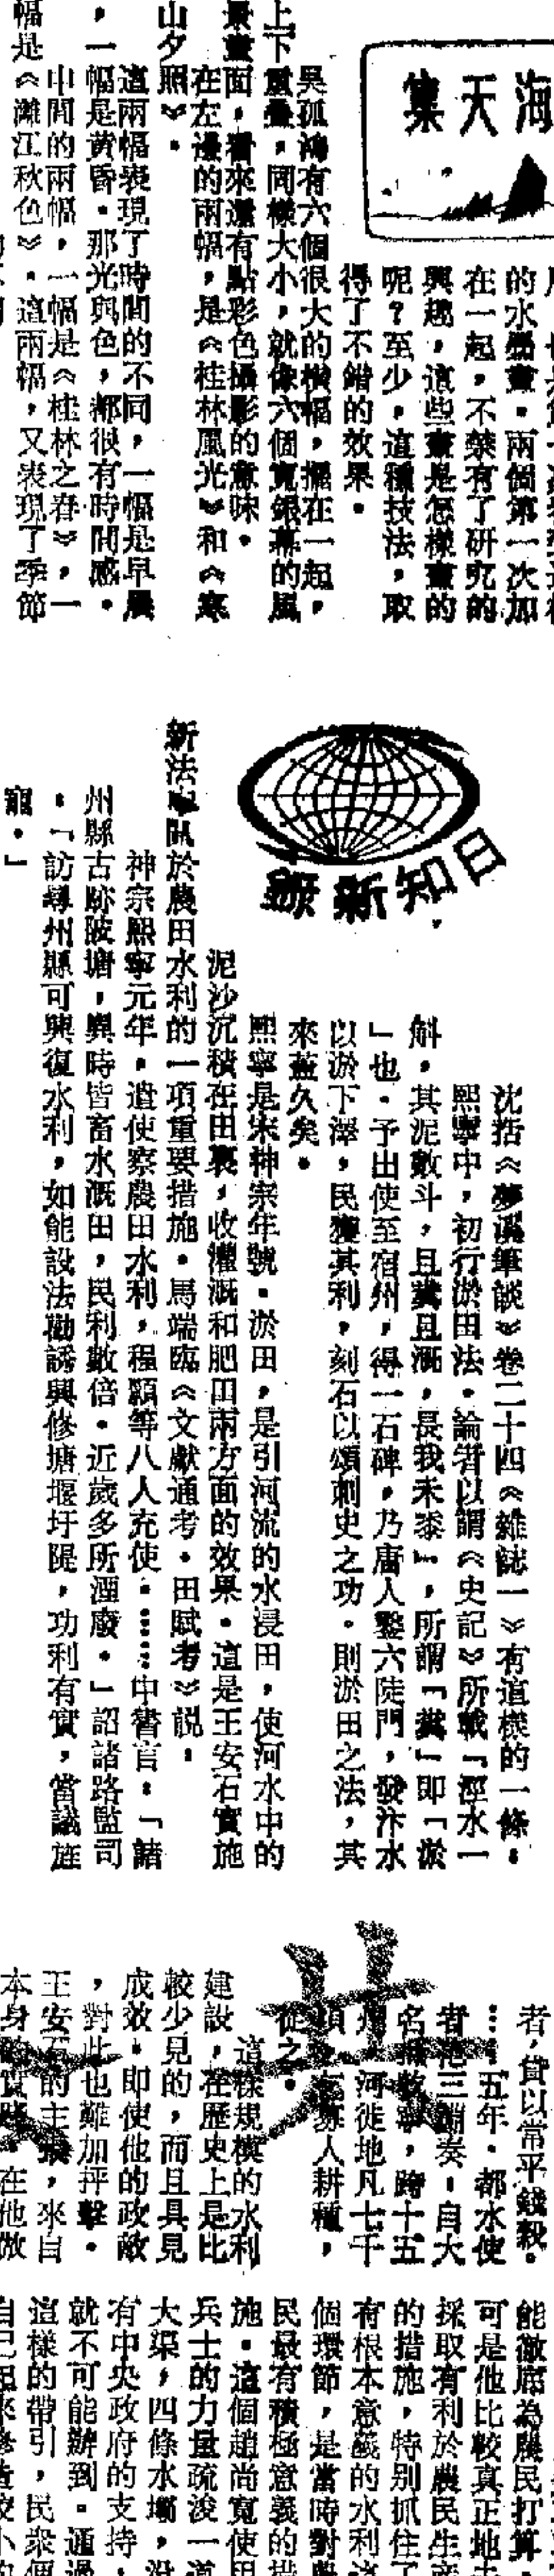 海天集
的水墨畫。兩個第一次加
在一起，不禁有了研究的
興趣，這些畫是怎樣畫的
呢？至少，這種技法，取
得了不錯的效果。
吳孤鴻有六個很大的橫幅，擺在一起，
上下重疊，同樣大小，就像六個寬銀幕的風
景畫面，看來還有點彩色攝影的意味。
在左邊的兩幅，是《桂林風光》和《
山夕照》。
這兩幅表現了時間的不同，一幅是早晨
，一幅是黃昏。那光與色，都很有時間感。
中間的兩幅，一幅是《桂林之春》，一
幅是《灕江秋色》。這兩幅，又表現了季節
的不同
日知新錄
沈括《夢溪筆談》卷二十四《雜誌一》有這樣的一條：
熙寧中，初行淤田法。論者以謂《史記》所載「涇水一
斛，其泥數斗，且糞且溉，長我禾黍」，所謂「糞」即「淤
」也。予出使至宿州，得一石碑，乃唐人鑿六陡門，發汴水
以淤下澤，民獲其利，刻石以頌刺史之功。則淤田之法，其
來蓋久矣。
熙寧是宋神宗年號。淤田，是引河流的水浸田，使河水中的
泥沙沉積在田裏，收灌溉和肥田兩方面的效果。這是王安石實施
新法中關於農田水利的一項重要措施。馬端臨《文獻通考·田賦考》說：
神宗熙寧元年，遣使察農田水利，程顥等八人充使。……中書言：「諸
州縣古跡陂塘，異時皆畜水溉田，民利數倍。近歲多所湮廢。」詔諸路監司
：「訪尋州縣可興復水利，如能設法勸誘興修塘堰圩隄，功利有實，當議旌
寵。」
者，貸以常平錢穀。
……五年。都水使
者范三淵奏：自大
名
河徙地凡七千
人耕種，
從之。
這樣規模的水利
建設，在歷史上是比
較少見的，而且具見
成效。即使他的政敵
，對此也難加抨擊。
王安石的主張，來自
本身的實踐。在他做
能徹底為農民打算，
可是他比較真正地去
採取有利於農民生產
的措施，特別抓住了
有根本意義的水利這
個環節，是當時對農
民最有積極意義的措
施。這個趙尚寬使用
兵士的力量疏浚一道
大渠，四條水壩，沒
有中央政府的支持，
就不可能辦到。通過
這樣的帶引，民衆便
自己起來修造較小的